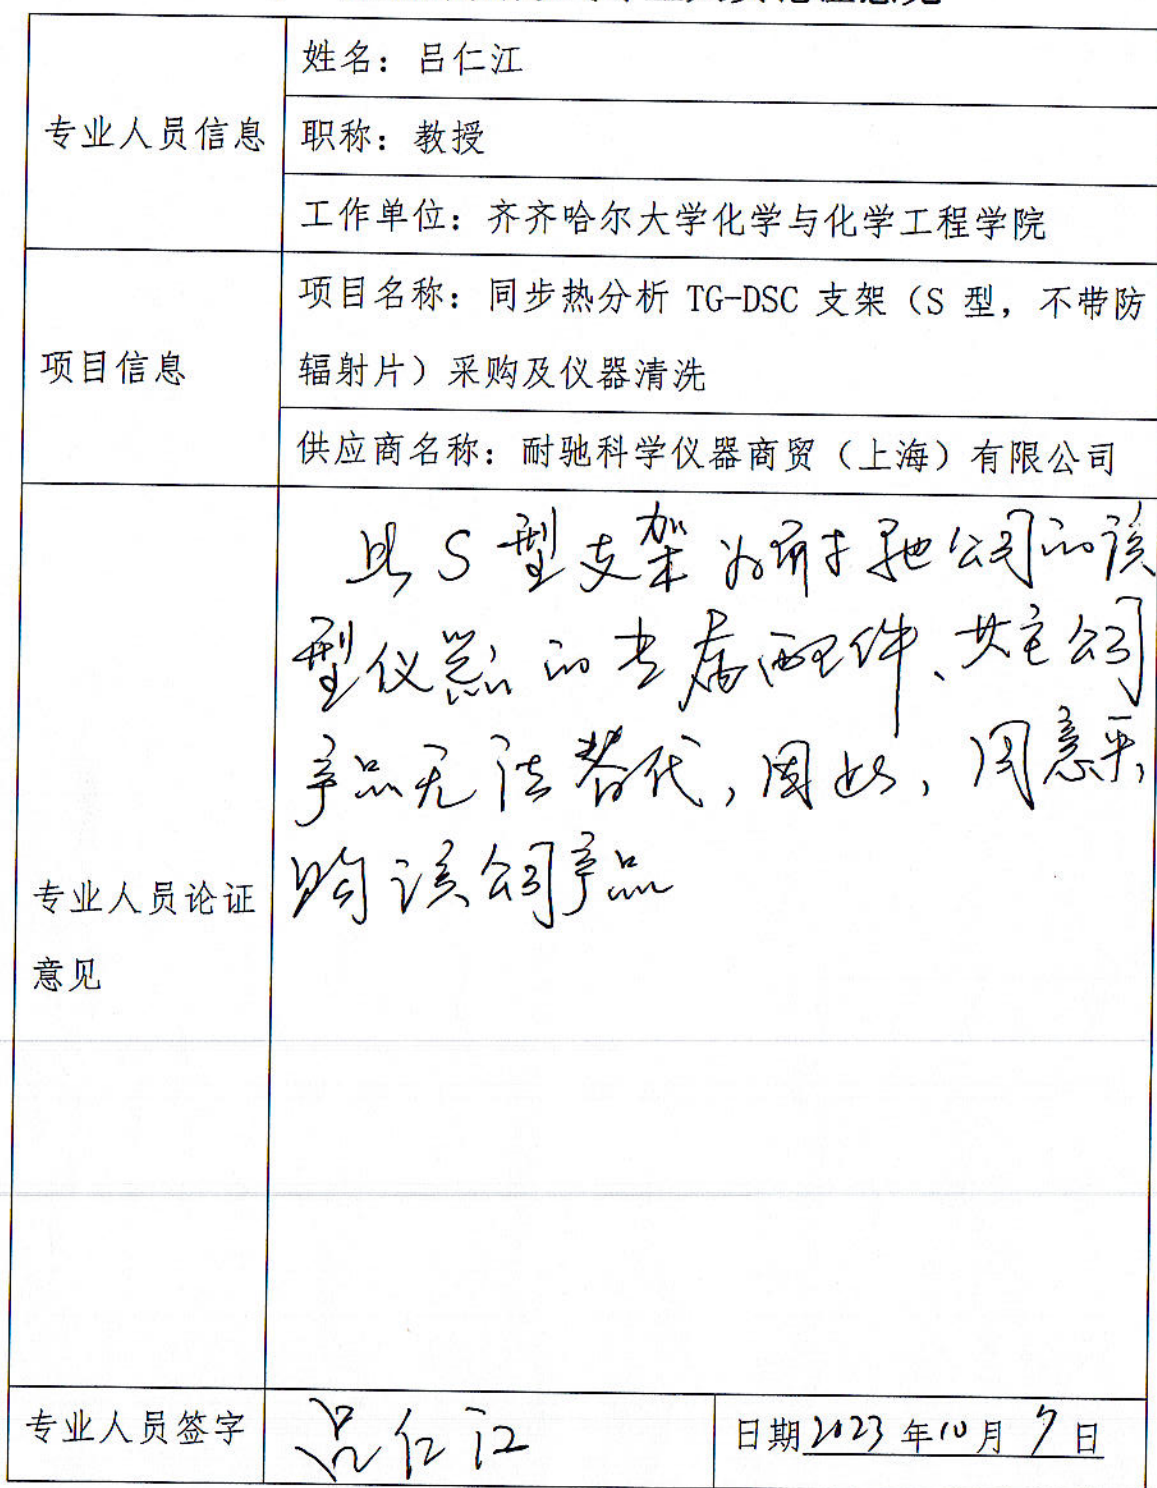 专业人员信息
姓名：吕仁江
职称：教授
工作单位：齐齐哈尔大学化学与化学工程学院
项目信息
项目名称：同步热分析 TG-DSC 支架（S 型，不带防
辐射片）采购及仪器清洗
供应商名称：耐驰科学仪器商贸（上海）有限公司
专业人员论证
意见
此S型支架为耐驰公司的该
型仪器的专属配件、其它公司
产品无法替代，因此，同意采
购该公司产品
专业人员签字
吕仁江
日期2023年10月9日